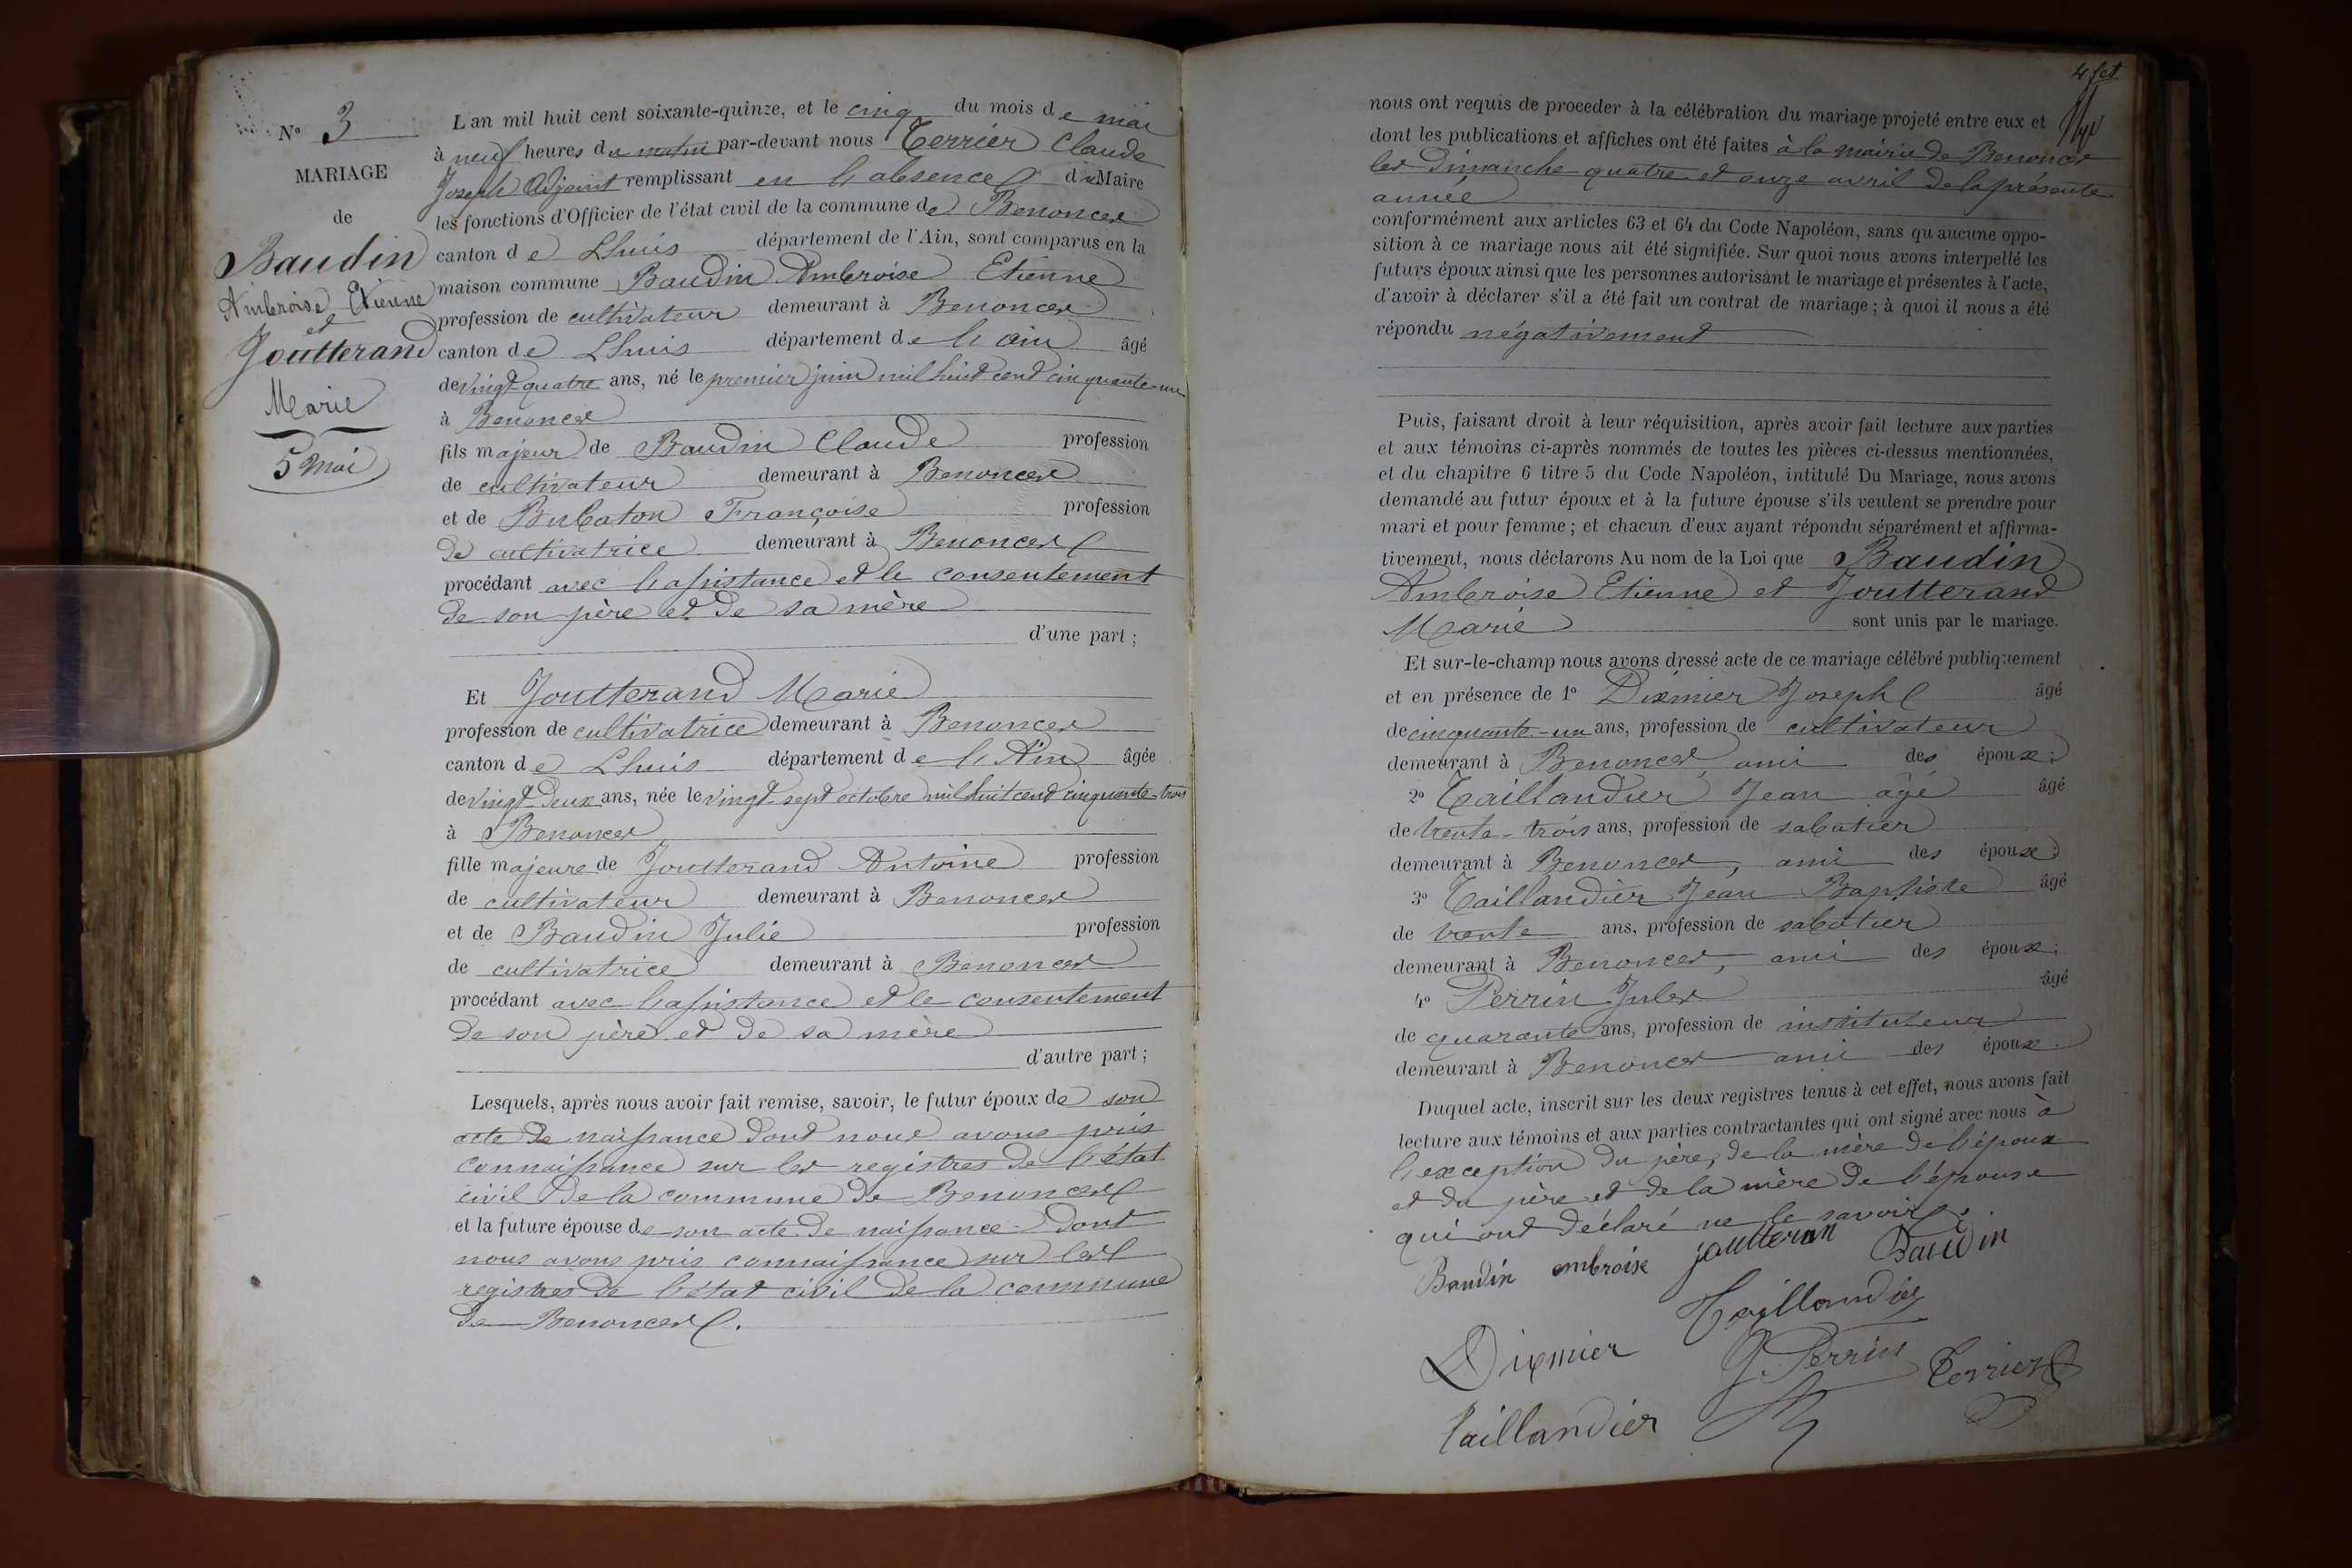 N° 3
MARIAGE
de
Baudin
Ambroise Etienne
et
Joutterand
Marie
5 Mai
L'an mil huit cent soixante-quinze, et le cinq du mois de mai
à neuf heures du matin par-devant nous Terrier Claude
Joseph Adjoint remplissant en l'absence du Maire
les fonctions d'Officier de l'état civil de la commune de Benonces
canton de Lhuis département de l'Ain, sont comparus en la
maison commune Baudin Ambroise Etienne
profession de cultivateur demeurant à Benonces
canton de Lhuis département de l'ain âgé
de vingt quatre ans, né le premier juin mil huit cent cinquante-un
à Benonces
fils majeur de Baudin Claude profession
de cultivateur demeurant à Benonces
et de Bubaton Françoise profession
de cultivatrice demeurant à Benonces
procédant avec l'assistance et le consentement
de son père et de sa mère
d'une part ;
Et Joutterand Marie
profession de cultivatrice demeurant à Benonces
canton de Lhuis département de l'Ain âgée
de vingt-deux ans, née le vingt-sept octobre mil huit cent cinquante-trois
à Benonces
fille majeure de Joutterand Antoine profession
de cultivateur demeurant à Benonces
et de Baudin Julie profession
de cultivatrice demeurant à Benonces
procédant avec l'assistance et le consentement
de son père et de sa mère
d'autre part ;
Lesquels, après nous avoir fait remise, savoir, le futur époux de son
acte de naissance dont nous avons pris
connaissance sur les registres de l'état
civil de la commune de Benonces
et la future épouse de son acte de naissance dont
nous avons pris connaissance sur les
registres de l'état civil de la commune
de Benonces.
4 fet
nous ont requis de proceder à la célébration du mariage projeté entre eux et
dont les publications et affiches ont été faites à la mairie de Benonces
les dimanche quatre et onze avril de la présente
année
conformément aux articles 63 et 64 du Code Napoléon, sans qu'aucune oppo-
sition à ce mariage nous ait été signifiée. Sur quoi nous avons interpellé les
futurs époux ainsi que les personnes autorisant le mariage et présentes à l'acte,
d'avoir à déclarer s'il a été fait un contrat de mariage ; à quoi il nous a été
répondu négativement
Puis, faisant droit à leur réquisition, après avoir fait lecture aux parties
et aux témoins ci-après nommés de toutes les pièces ci-dessus mentionnées,
et du chapitre 6 titre 5 du Code Napoléon, intitulé Du Mariage, nous avons
demandé au futur époux et à la future épouse s'ils veulent se prendre pour
mari et pour femme ; et chacun d'eux ayant répondu séparément et affirma-
tivement, nous déclarons Au nom de la Loi que Baudin
Ambroise Etienne et Joutterand
Marie sont unis par le mariage.
Et sur-le-champ nous avons dressé acte de ce mariage célébré publiquement
et en présence de 1° Dixmier Joseph âgé
de cinquante-un ans, profession de cultivateur
demeurant à Benonces, ami des époux ;
2° Taillandier Jean âgé âgé
de trente-trois ans, profession de sabatier
demeurant à Benonces, ami des époux ;
3° Taillandier Jean Baptiste âgé
de trente ans, profession de sabatier
demeurant à Benonces, ami des époux ;
4° Perrin Jules âgé
de quarante ans, profession de instituteur
demeurant à Benonces ami des époux.
Duquel acte, inscrit sur les deux registres tenus à cet effet, nous avons fait
lecture aux témoins et aux parties contractantes qui ont signé avec nous à
l'exception du père, de la mère de l'époux
et du père et de la mère de l'épouse
qui ont déclaré ne le savoir.
Baudin ambroise joutteran Baudin
Taillandier
Dixmier J. Perrin Terrier
Taillandier